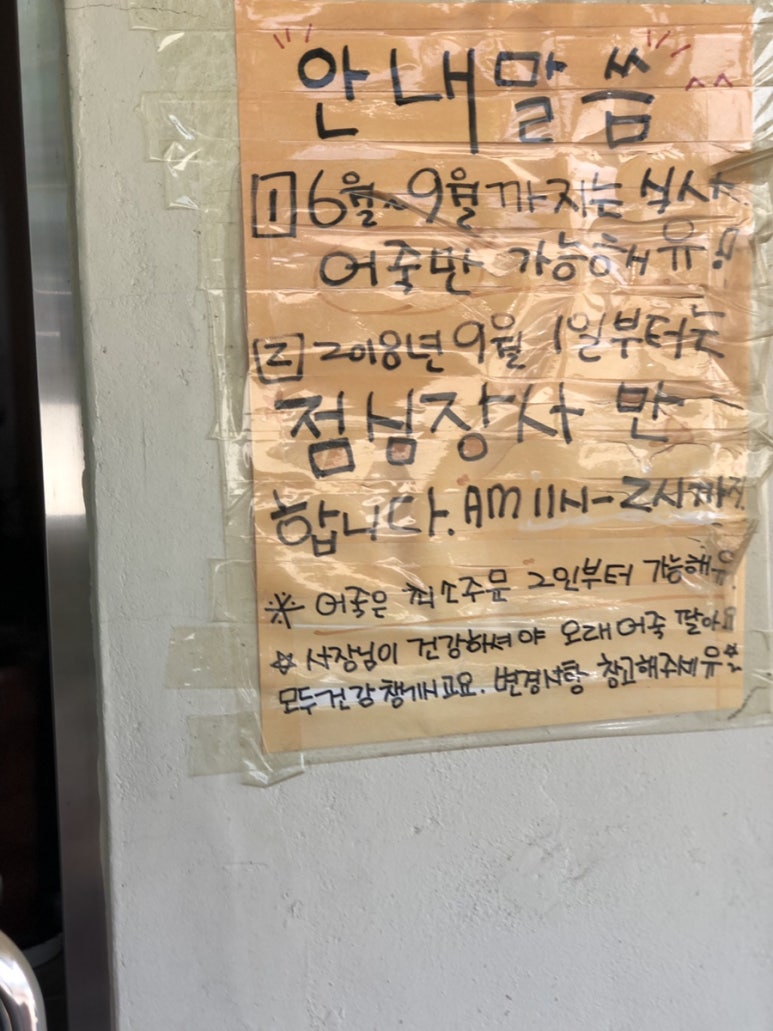 안내말씀 ^^
1 6월~9월까지는 식사
어죽만 가능해유!
2 2018년 9월 1일부터는
점심장사만
합니다. AM 11시-2시까지.
※ 어죽은 최소주문 2인부터 가능해유.
☆ 사장님이 건강하셔야 오래 어죽 팔아요
모두건강챙기시고요. 변경사항 참고해주세유☆